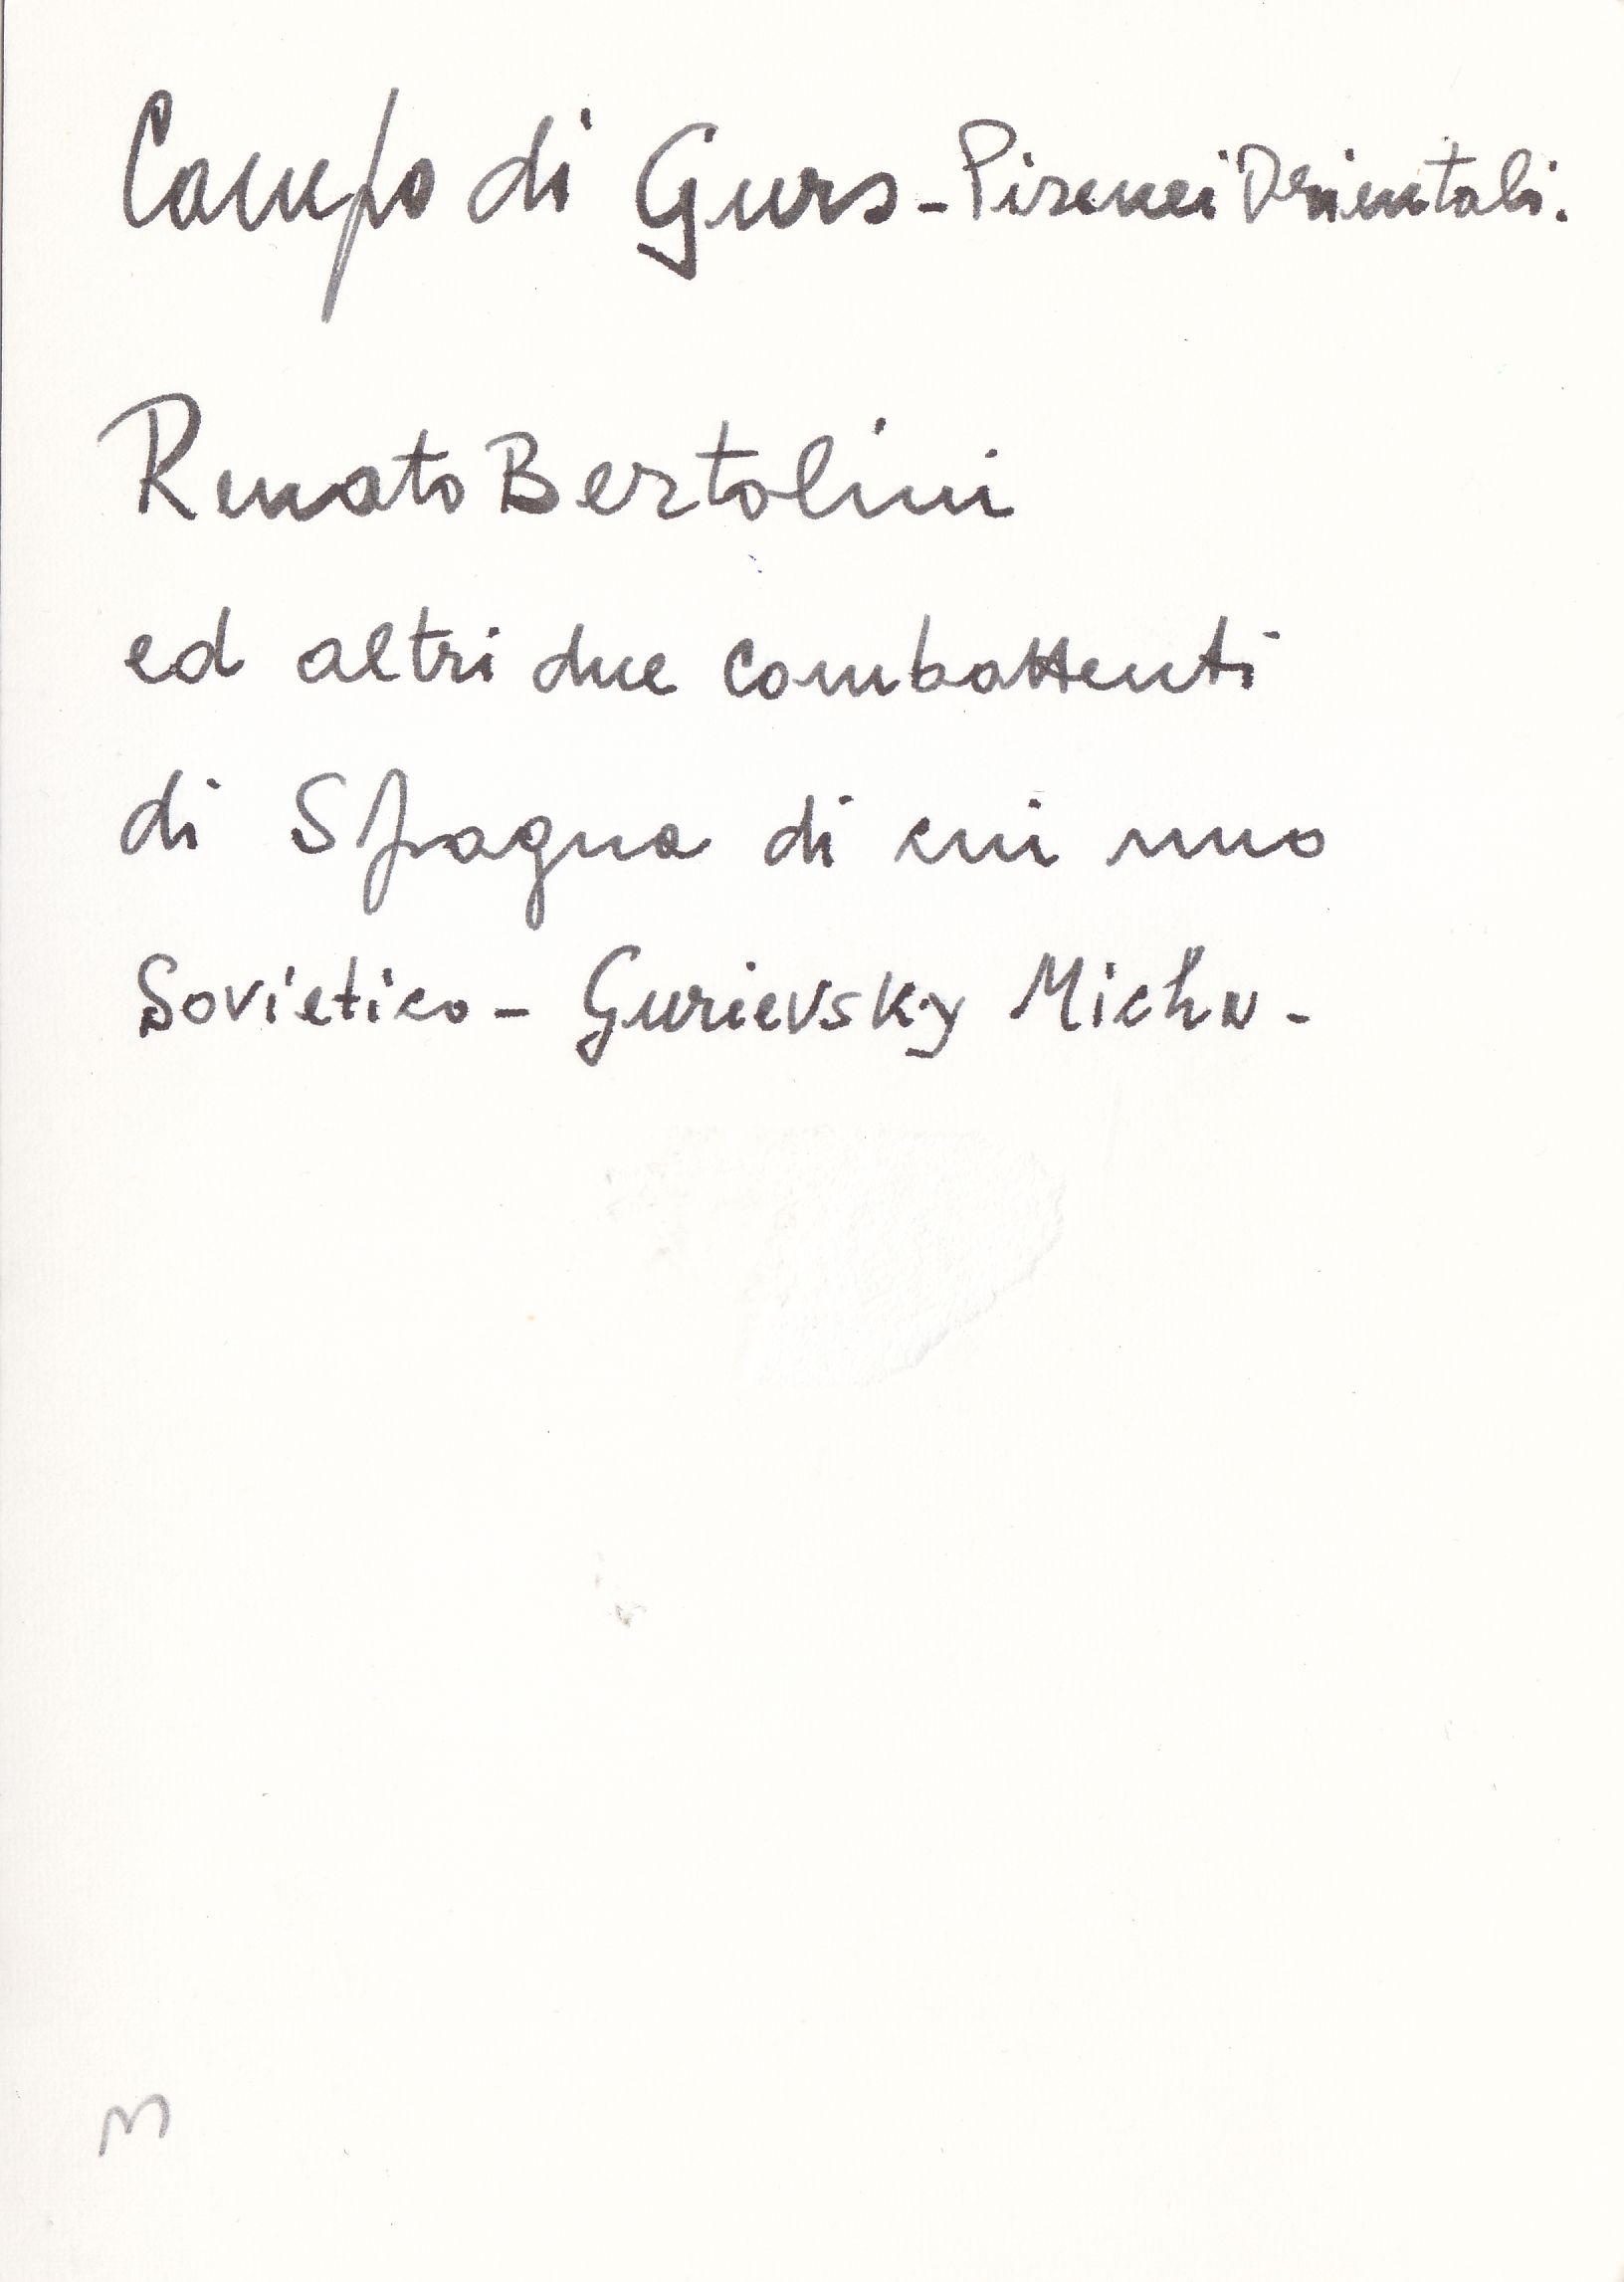 Campo di Gurs - Pirenei Orientali.
Renato Bertolini
ed altri due combattenti
di Spagna di cui uno
Sovietico - Gurievsky Micha -